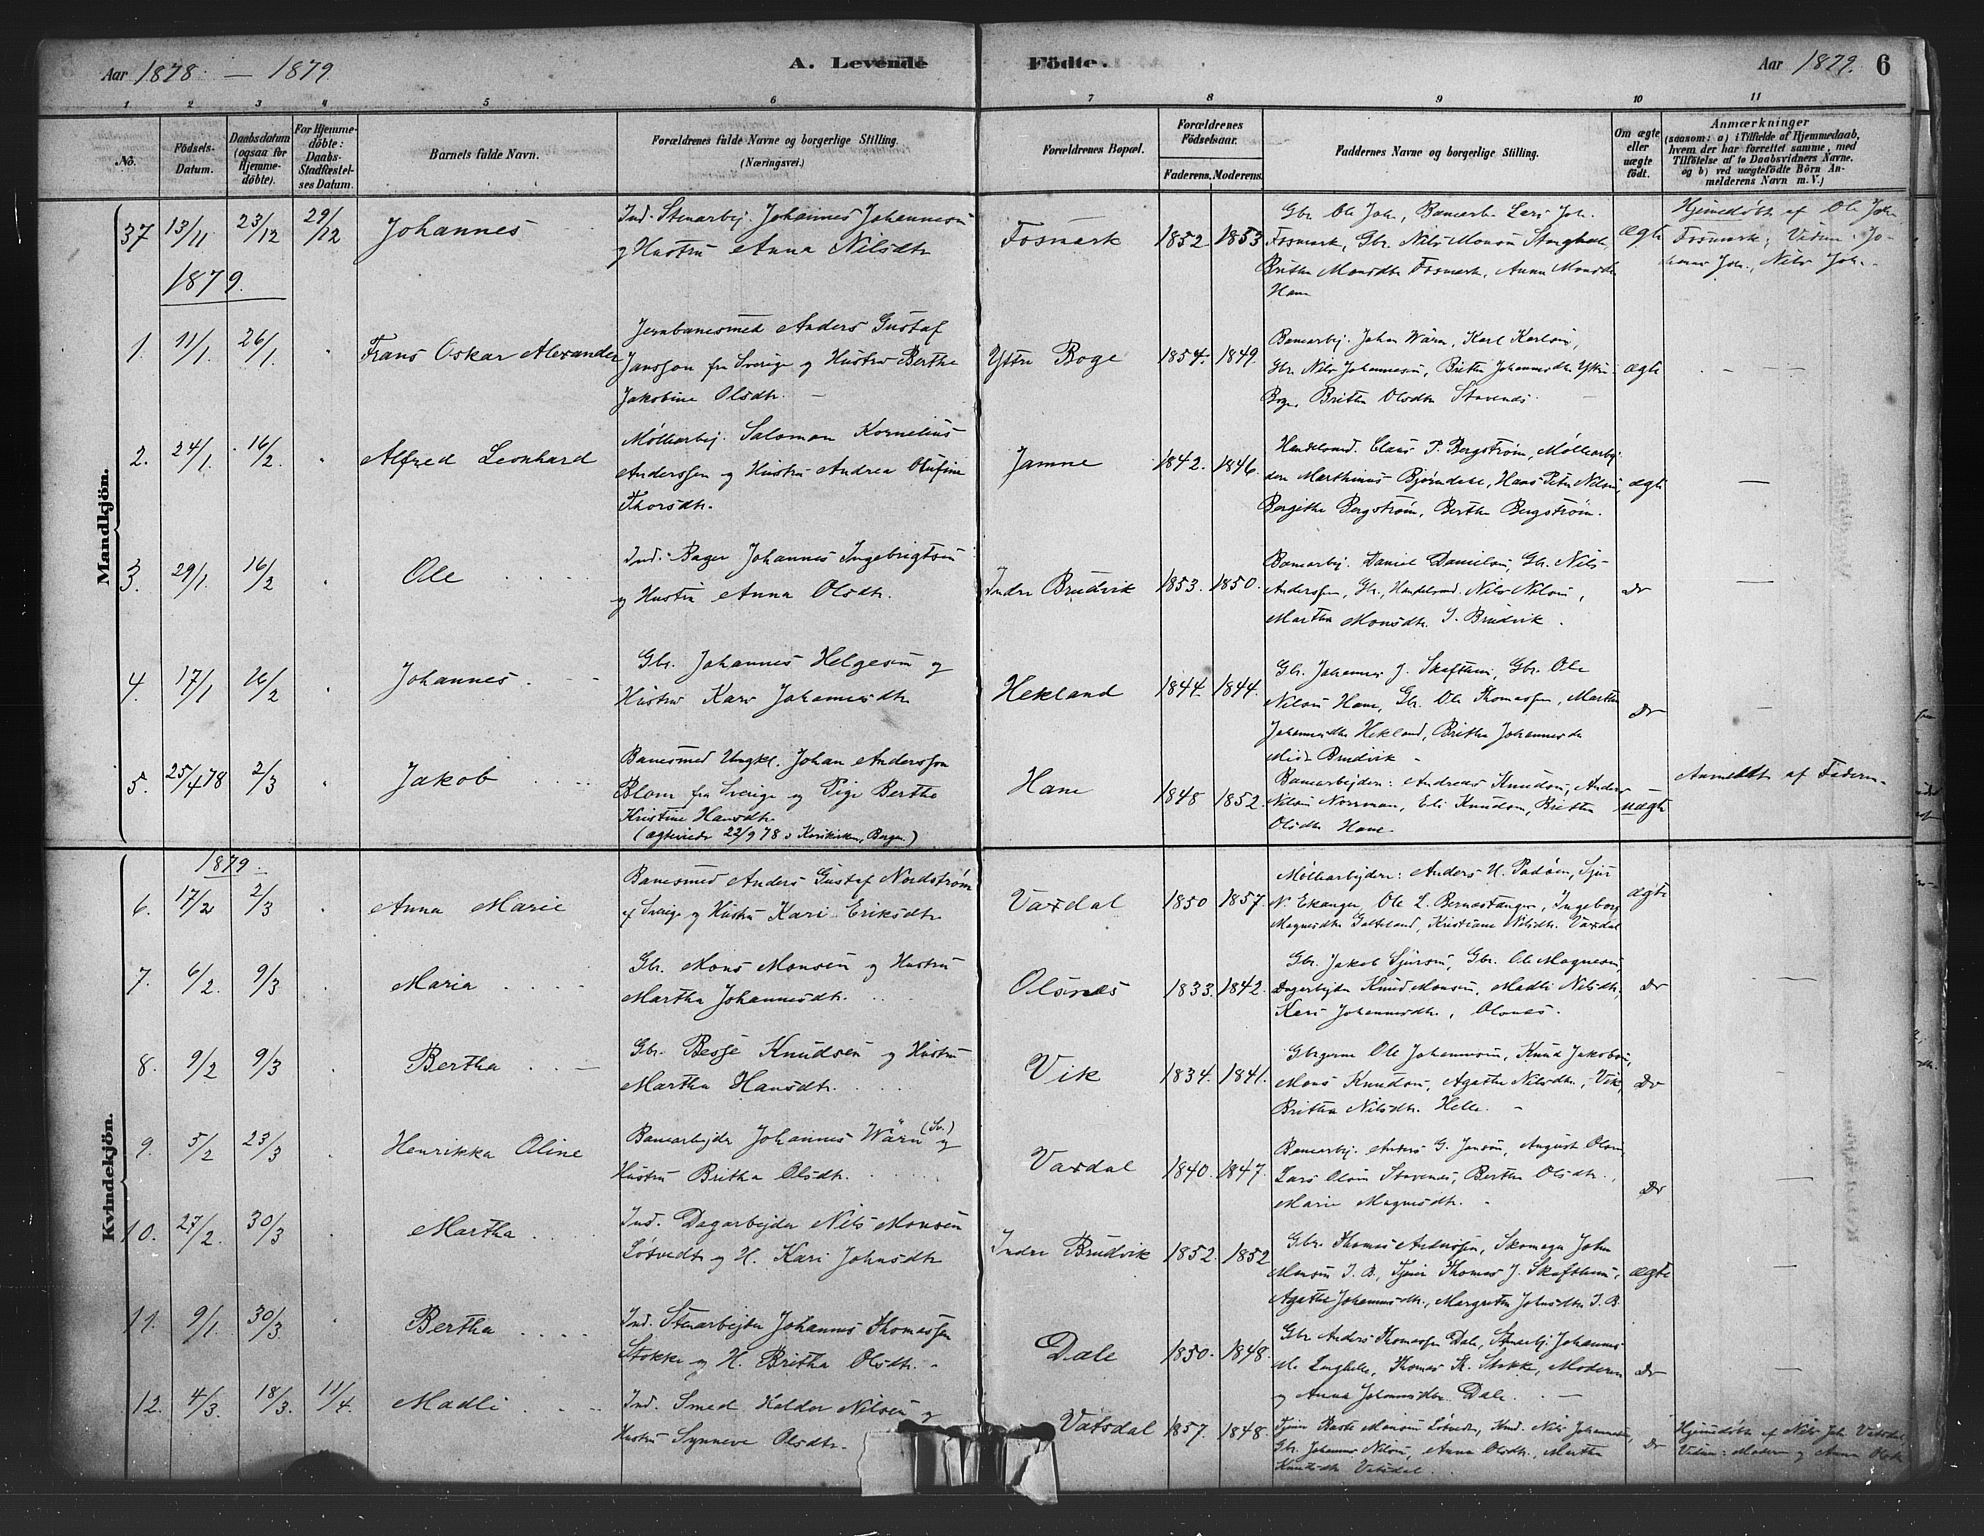 Aar 1878 — 1879
A. Levende Födte.
Aar 1879. 6
1 2 3 4 5 6 7 8 9 10 11
No.
Födsels-Datum.
Daabsdatum (ogsaa for Hjemme-döbte).
For Hjemme-döbte: Daabs-Stadfæstel-ses Datum.
Barnets fulde Navn.
Forældrenes fulde Navne og borgerlige Stilling. (Næringsvei.)
Forældrenes Bopæl.
Forældrenes Födselsaar.
Faderens. Moderens.
Faddernes Navne og borgerlige Stilling.
Om ægte eller uægte födt.
Anmærkninger
(saasom: a) i Tilfælde af Hjemmedaab, hvem der har forrettet samme, med Tilföielse af to Daabsvidners Navne, og b) ved uægtefödte Börn An-melderens Navn m. V.)
Mandkjön.
37 13/11 23/12 29/12 Johannes
Ind. Stenarbej. Johannes Johannesen
og Hustru Anna Nilsdtr
Fosmark 1852 1853
Gbr. Ole Joh., Banearb. Lars Joh.
Fosmark, Gbr. Nils Monsen
Britha Monsdtr Fosmark, Anna Monsdtr
Hane
Ægte
Hjemmedøbt af Ole Joh.
Fosmark; Vidner: Jo-
hannes Joh., Nils Joh.
1879.
1. 11/1 26/1 Frans Oskar Alexander
Jernbanesmed Anders Gustaf
Jansson fra Sverige og Hustru Berthe
Jakobine Olsdtr. —
Yttre Boge 1854. 1849.
Banearbej. Johan Wärn, Karl Karlson,
Gbr. Nils Johannesen, Britha Johannesdtr Yttre
Boge, Britha Olsdtr Stavenes
ægte
2. 24/1. 16/2. Alfred Leonhard
Møllearbej. Salomon Kornelius
Anderssen og Hustru Andrea Olufine
Thorsdtr.
Jamne 1842. 1846.
Handelsmd. Claus P. Bergstrøm, Møllearbej-
dere Marthinus Bjørndal, Hans Peter Nilsen,
Bergithe Bergstrøm, Berthe Bergstrøm.
ægte
3. 29/1. 16/2 Ole
Ind. Bager Johannes Ingebrigtsen
og Hustru Anna Olsdtr.
Indre Brudvik 1853. 1850.
Banearbej. Daniel Danielsen, Gbr. Nils
Anderssen, Gbr., Handelsmd. Nils Nilsen,
Martha Monsdtr. I. Brudvik.
Do
4. 17/1 16/2 Johannes
Gbr. Johannes Helgesen og
Hustru Kari Johannesdtr
Hekland 1844. 1844.
Gbr. Johannes J. Skaftun, Gbr. Ole
Nilsen Hane, Gbr. Ole Thomassen, Martha
Johannesdtr Hekland, Britha Johannesdtr
Brudvik
Do
5. 25/4 78 2/3 Jakob
Banesmed Ungkl. Johan Andersson
Blom fra Sverige og Pige Berthe
Kristine Hansdtr
(ægteviede 22/9 78 i Korskirken, Bergen.)
Hane 1848 1852.
Banearbejdere: Andreas Knudsen, Anders
Nilsen Norrman, Eli Knudsen, Britha
Olsdtr Hane
uægte
Anmeldt af Faderen
Kvindekjön.
1879
6. 17/2 2/3 Anna Marie
Banesmed Anders Gustaf Nordstrøm
af Sverige og Hustru Kari Eriksdtr
Vaxdal 1850 1857.
Møllearbejdere: Anders H. Padøen, Sjur
N. Ekanger, Ole L. Bernestanger, Ingeborg
Magnesdtr Galteland, Kristiane Nilsdtr. Vaxdal
ægte
7. 6/2. 9/3 Maria
Gbr. Mons Monsen og Hustru
Martha Johannesdtr.
Olsnes 1833. 1842.
Gbr. Jakob Sjursen, Gbr. Ole Magnesen,
Dagarbejder Knud Monsen, Madli Nilsdtr,
Kari Johannesdtr., Olsnes.
Do
8. 9/2 9/3 Bertha
Gbr. Besse Knudsen og Hustru
Martha Hansdtr.
Vik 1834. 1841.
Gbrgerne Ole Johannesen, Knud Jakobsen,
Mons Knudsen, Agathe Nilsdtr., Vik,
Britha Nilsdtr. Helle. —
Do
9. 5/2 23/3 Henrikka Oline
Banearbejder Johannes Wärn (Sv.) og
Hustru Britha Olsdtr.
Vaxdal 1840. 1847.
Banearbej. Anders G. Jansen, August Olsen
Lars Olsen Stavenes, Bertha Olsdtr.,
Marie Magnesdtr. —
Do
10. 27/2. 30/3 Martha
Ind. Dagarbejder Nils Monsen
Løtvedt og H. Kari Johnsdtr
Indre Brudvik 1852. 1852
Gbr. Thomas Anderssen, Skomager John
Monsen I. B., Tjener Thomas J. Skaftun,
Agathe Johannesdtr., Margrethe Johnsdtr I. B.
ægte
11. 9/1. 30/3 Bertha
Ind. Stenarbejder Johannes Thomassen
Stokke og H. Britha Olsdtr. -
Dale 1850. 1848.
Gbr Anders Thomassen Dale, Stenarbj. Johannes
Thomas Th. Stokke, Moderen
og Anna Johannesdtr Dale. —
Do
12. 4/3. 18/3. 11/4. Madli
Ind. Smed Haldor Nilsen og
Hustru Synneve Olsdtr.
Vatsdal 1857. 1848.
Tjener Monsen Løtvedt, Nils Johannesen,
Gbr. Johannes Nilsen, Anna Olsdtr., Martha
Knutsdtr Vatsdal.
Do
Hjemmedøbt af Nils Joh. Vatsdal
Vidner: Moderen og Anna Olsdtr